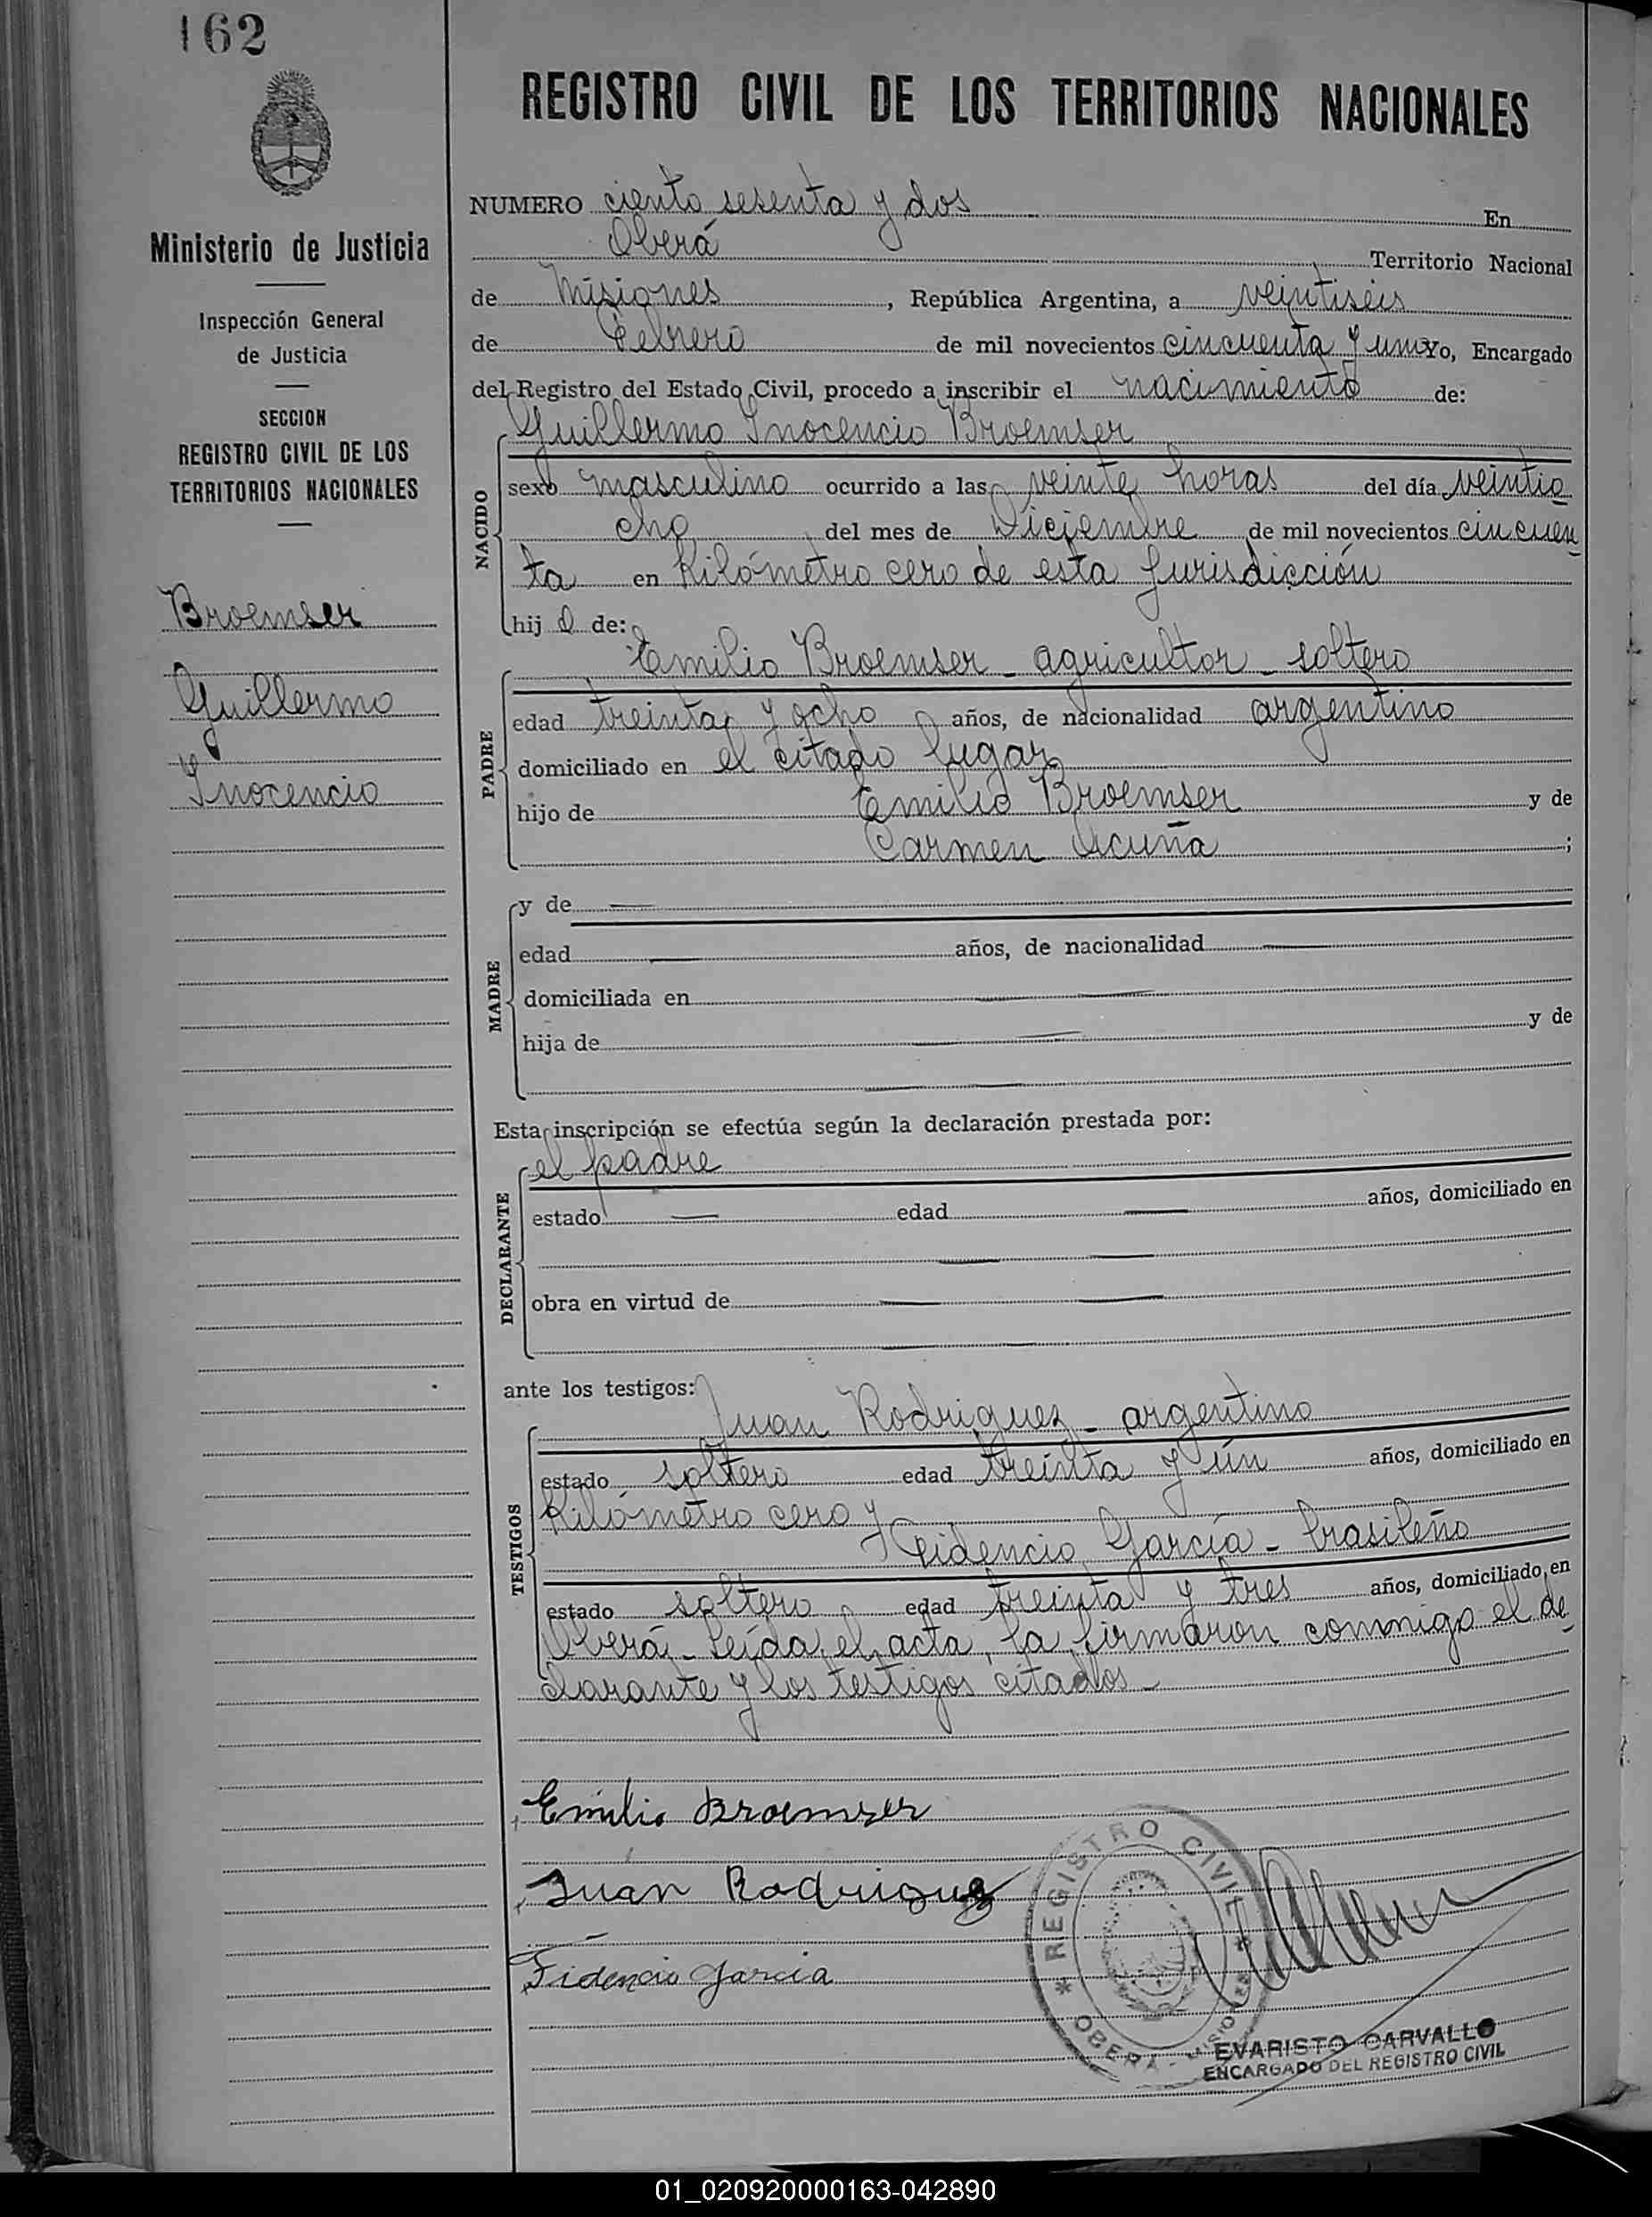 162
REGISTRO CIVIL DE LOS TERRITORIOS NACIONALES
Ministerio de Justicia
Inspección General
de Justicia
SECCION
REGISTRO CIVIL DE LOS
TERRITORIOS NACIONALES
Broemser
Guillermo
Inocencio
NUMERO ciento sesenta y dos En
Oberá Territorio Nacional
de Misiones, República Argentina, a veintiséis
de Febrero de mil novecientos cincuenta y uno Yo, Encargado
del Registro del Estado Civil, procedo a inscribir el nacimiento de:
NACIDO
Guillermo Inocencio Broemser
sexo masculino ocurrido a las veinte horas del día veintio
cho del mes de Diciembre de mil novecientos cincuen
ta en Kilómetro cero de esta Jurisdicción
hij o de:
PADRE
Emilio Broemser - agricultor - soltero
edad treinta y ocho años, de nacionalidad argentino
domiciliado en el citado lugar
hijo de Emilio Broemser y de
Carmen Acuña ;
MADRE
y de —
edad — años, de nacionalidad —
domiciliada en — —
hija de — — y de
— —
Esta inscripción se efectúa según la declaración prestada por:
DECLARANTE
el padre
estado — edad — años, domiciliado en
— —
obra en virtud de — —
— —
ante los testigos:
TESTIGOS
Juan Rodriguez - argentino
estado soltero edad treinta y ún años, domiciliado en
Kilómetro cero y
Fidencio García - brasileño
estado soltero edad treinta y tres años, domiciliado en
Oberá - Leída el acta, la firmaron conmigo el de
clarante y los testigos citados -
Emilio Broemser
Juan Rodriguez
Fidencio Garcia
* REGISTRO CIVIL *
OBERA - MISIONES
EVARISTO CARVALLO
ENCARGADO DEL REGISTRO CIVIL
01_020920000163-042890